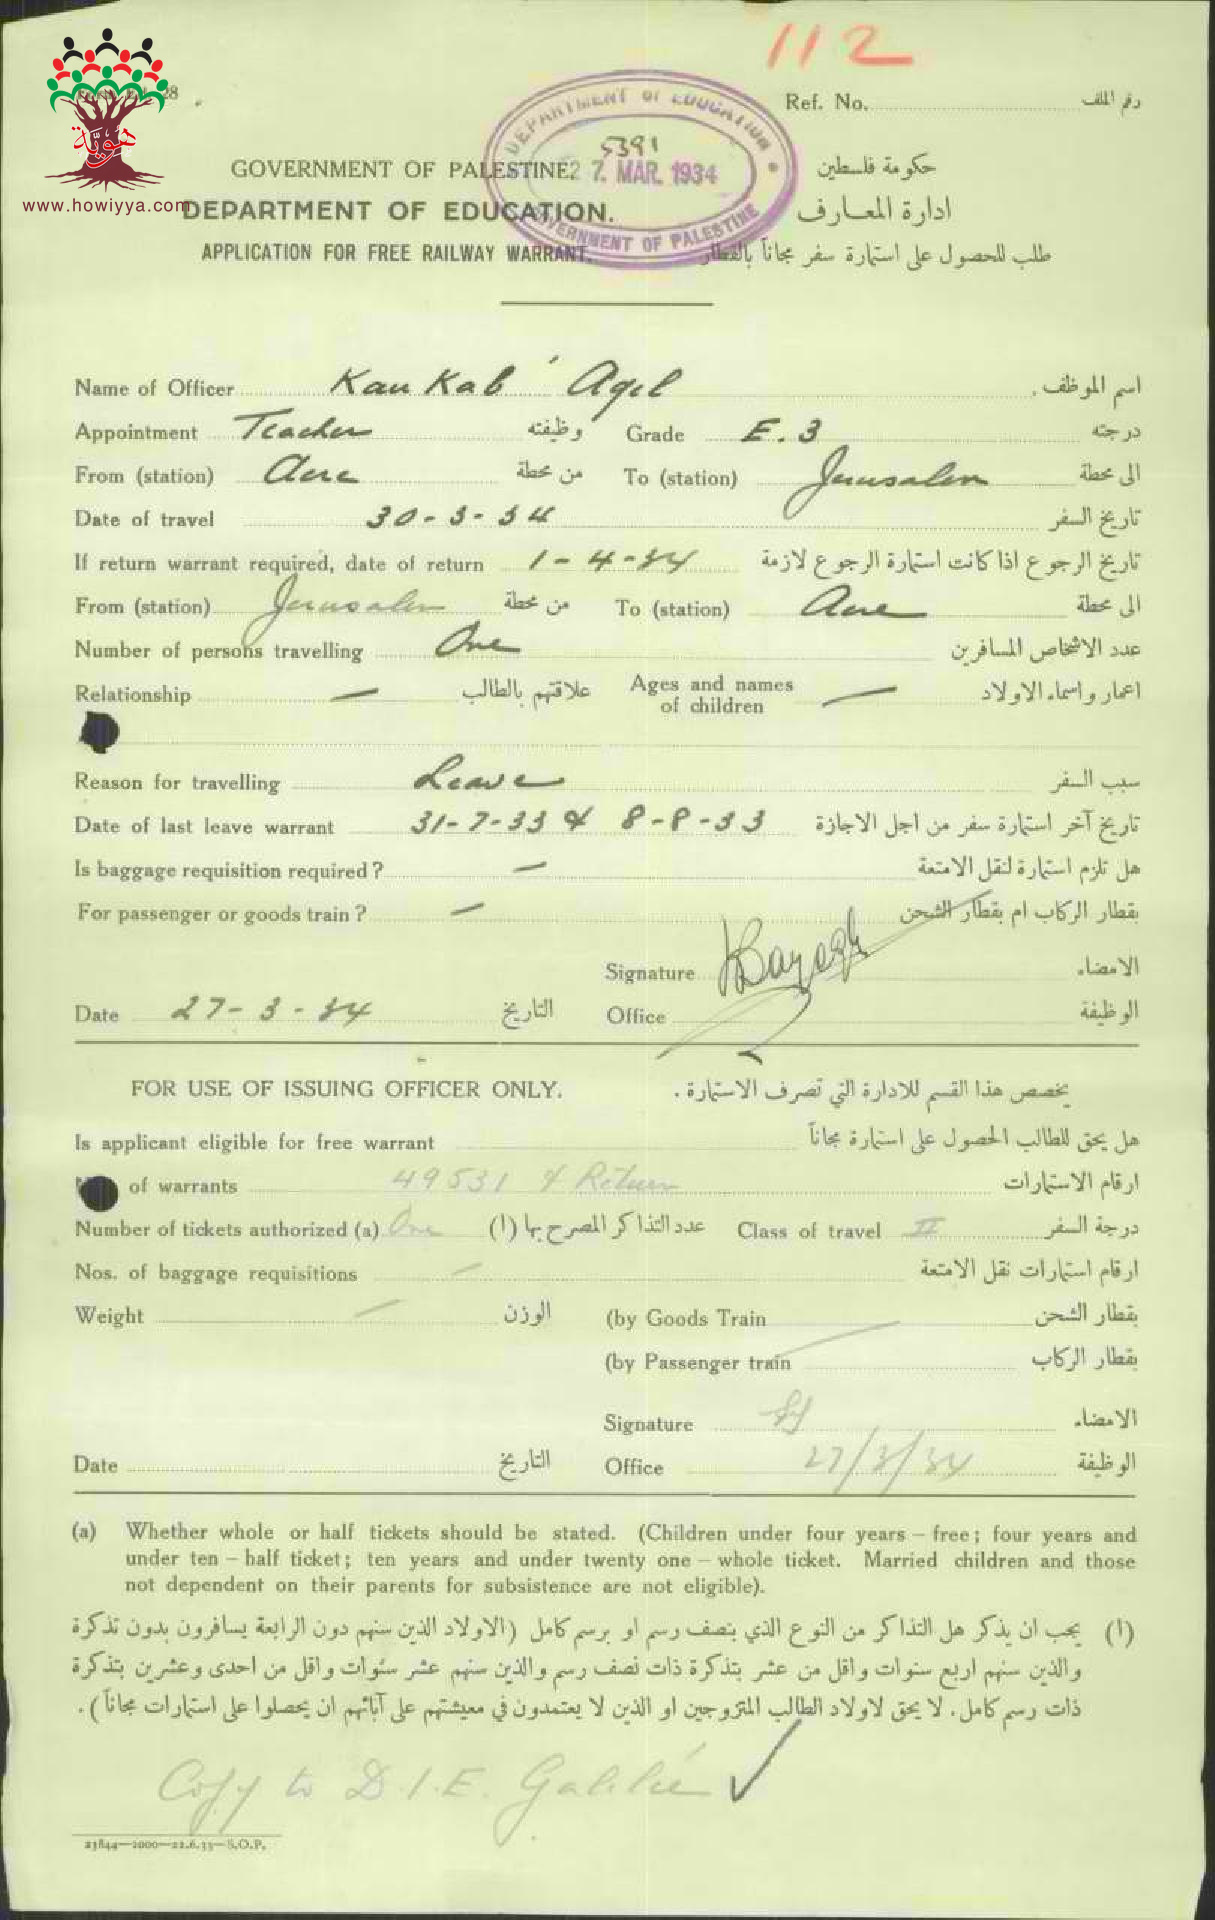 112
هوية
www.howiyya.com
28
Ref. No. رقم الملف
DEPARTMENT OF EDUCATION
5391
27 MAR. 1934
GOVERNMENT OF PALESTINE
GOVERNMENT OF PALESTINE. حكومة فلسطين
DEPARTMENT OF EDUCATION. ادارة المعارف
APPLICATION FOR FREE RAILWAY WARRANT. طلب للحصول على استمارة سفر مجاناً بالقطار
Name of Officer Kaukab Aqel اسم الموظف.
Appointment Teacher وظيفته Grade E.3 درجته
From (station) Acre من محطة To (station) Jerusalem الى محطة
Date of travel 30-3-34 تاريخ السفر
If return warrant required, date of return 1-4-34 تاريخ الرجوع اذا كانت استمارة الرجوع لازمة
From (station) Jerusalem من محطة To (station) Acre الى محطة
Number of persons travelling One عدد الاشخاص المسافرين
Relationship — علاقتهم بالطالب Ages and names of children — اعمار واسماء الاولاد
Reason for travelling Leave سبب السفر
Date of last leave warrant 31-7-33 & 8-8-33 تاريخ آخر استمارة سفر من اجل الاجازة
Is baggage requisition required? — هل تلزم استمارة لنقل الامتعة
For passenger or goods train? — بقطار الركاب ام بقطار الشحن
Signature الامضاء.
Date 27-3-34 التاريخ Office الوظيفة
FOR USE OF ISSUING OFFICER ONLY. يخصص هذا القسم للادارة التي تصرف الاستمارة.
Is applicant eligible for free warrant هل يحق للطالب الحصول على استمارة مجاناً
of warrants 49531 & Return ارقام الاستمارات
Number of tickets authorized (a) One عدد التذاكر المصرح بها (ا) Class of travel II درجة السفر
Nos. of baggage requisitions — ارقام استمارات نقل الامتعة
Weight — الوزن (by Goods Train بقطار الشحن
(by Passenger train بقطار الركاب
Signature الامضاء.
Date التاريخ Office 27/3/34 الوظيفة
(a) Whether whole or half tickets should be stated. (Children under four years – free; four years and
under ten – half ticket; ten years and under twenty one – whole ticket. Married children and those
not dependent on their parents for subsistence are not eligible).
(ا) يجب ان يذكر هل التذاكر من النوع الذي بنصف رسم او برسم كامل (الاولاد الذين سنهم دون الرابعة يسافرون بدون تذكرة
والذين سنهم اربع سنوات واقل من عشر بتذكرة ذات نصف رسم والذين سنهم عشر سنوات واقل من احدى وعشرين بتذكرة
ذات رسم كامل. لا يحق لاولاد الطالب المتزوجين او الذين لا يعتمدون في معيشتهم على آبائهم ان يحصلوا على استمارات مجاناً).
Copy to D.I.E. Galilee ✓
23844—2000—22.6.33—S.O.P.